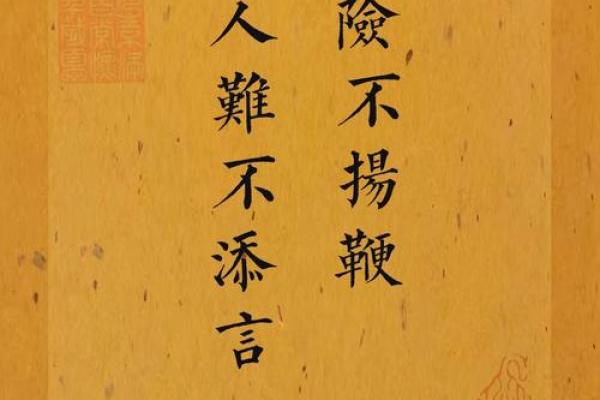 險不揚鞭
人難不添言